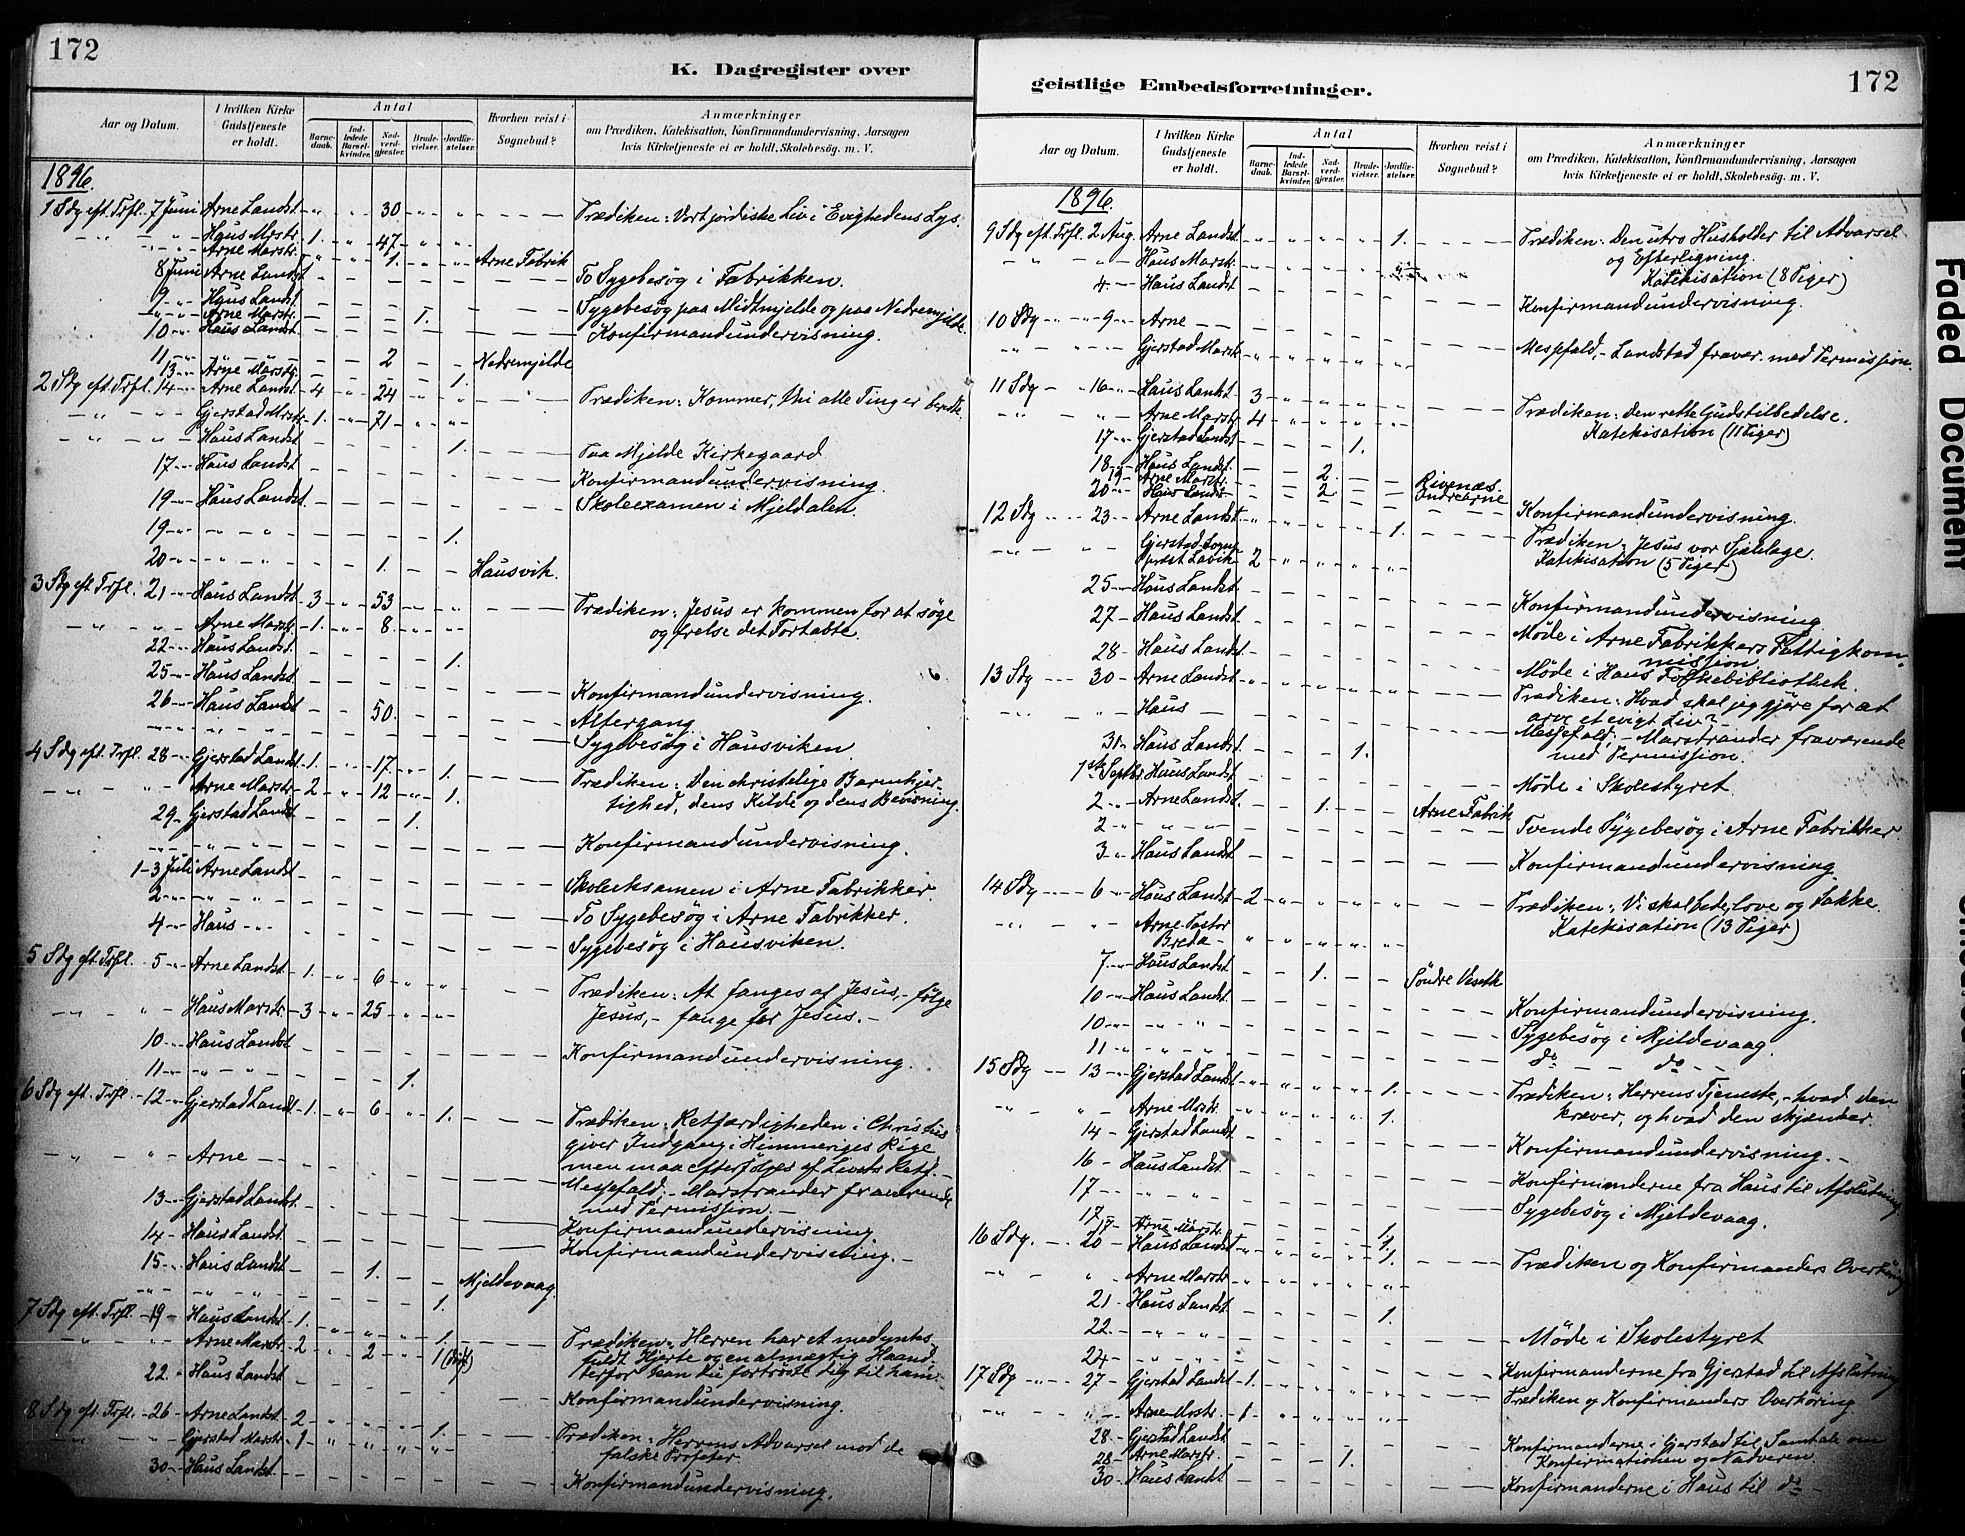 172
K. Dagregister over
Aar og Datum.
I hvilken Kirke Gudstjeneste er holdt.
Antal
Barne-daab.
Ind-ledede Barsel-kvinder.
Nad-verd-gjæster.
Brude-vielser.
Jordfæ-stelser.
Hvorhen reist i Sognebud?
Anmærkninger
om Prædiken, Katekisation, Konfirmandundervisning, Aarsagen
hvis Kirketjeneste ei er holdt, Skolebesög. m. V.
1896.
1 Sdg eft. Trfl. 7 Juni Arne Landst. " " 30 " " Prædiken: Vort jordiske Liv i Evighedens Lys.
" " " Haus Mrstr. 1. " 47. " "
" " " Arne Marstr. " " 1. " " Arne Fabrik
8 Juni Arne Landst. To Sygebesøg i Fabrikken.
9 " Haus Landst. Sygebesøg paa Midtmjelde og paa Nedremjelde
" " Arne Marstr. 1.
10 " Haus Landst. Konfirmandundervisning.
11 "
13 " Arne Marstr. 2 Nedremjelde
2 Sdg eft. Trfl. 14 " Arne Landst. 4 " 24 " 1. Prædiken: Kommer, thi alle Ting er beredte.
" " " Gjerstad Mrstr. 1. " 71 " "
" " " Haus Landst. 1. Paa Mjelde Kirkegaard
17 " Haus Landst. Konfirmandundervisning.
19 " Haus Landst. Skoleexamen i Mjeldalen
19 " " " 1.
20 " " " 1. Hausvik.
3 Sdg eft. Trfl. 21 " Haus Landst. 3 " 53 " " Prædiken: Jesus er kommen for at søge
og frelse det Fortabte.
" " " Arne Marstr. 1. " 8. " "
22 " Haus Landst. 1.
25 " Haus Landst. Konfirmandundervisning.
26 " Haus Landst. 50. Altergang
" " " " Sygebesøg i Hausviken
4 Sdg eft. Trfl. 28 " Gjerstad Landst. 1. " 17 " 1. Prædiken: Den christelige Barmhjer-
tighed, dens Kilde og dens Bevisning.
" " " Arne Marstr. 2 " 12 " 1.
29 " Gjerstad Landst. 1.
" " " " Konfirmandundervisning.
1-3 Juli Arne Landst. Skoleeksamen i Arne Fabrikker.
2 " " " To Sygebesøg i Arne Fabrikker.
4 " Haus " Sygebesøg i Hausviken.
5 Sdg eft. Trfl. 5 " Arne Landst. 1. " 6 " " Prædiken: At fanges af Jesus, - følge
Jesus, - fange for Jesus. -
" " " Haus Marstr. 3 " 25 " "
10 " Haus Landst. Konfirmandundervisning.
11 " " " 1.
6 Sdg eft. Trfl. 12 " Gjerstad Landst. 1. " 6 " 1. Prædiken: Retfærdigheden i Christus
giver Indgang i Himmeriges Rige
men maa efterfølges af Livets Retf. -
" " " Arne Messefald. - Marstrander fraværende
med Permission. -
13 " Gjerstad Landst. Konfirmandundervisning.
14 " Haus Landst. Konfirmandundervisning. -
15 " Haus Landst. 1. Mjeldevaag
" " " " 1.
7 Sdg eft. Trfl. 19 " Haus Landst. 1. " " " 1. Prædiken: Herren har et medynks
fuldt Hjerte og en almægtig Haand
derfor kan du fortrøste dig til ham.
" " " Arne Marstr. 2 " 2 " 1
22. " Haus Landst. Konfirmandundervisning.
8 Sdg eft. Trfl. 26 " Arne Landst. 2 " " " 1. Prædiken: Herrens Advarsel mod de
falske Profeter.
" " " Gjerstad Marstr. 1 " " " "
30 " Haus Landst. Konfirmandundervisning.
172
geistlige Embedsforretninger.
Aar og Datum.
I hvilken Kirke Gudstjeneste er holdt.
Antal
Barne-daab.
Ind-ledede Barsel-kvinder.
Nad-verd-gjæster.
Brude-vielser.
Jordfæ-stelser.
Hvorhen reist i Sognebud?
Anmærkninger
om Prædiken, Katekisation, Konfirmandundervisning, Aarsagen
hvis Kirketjeneste ei er holdt, Skolebesög. m. V.
1896.
9 Sdg eft. Trfl. 2 Aug. Arne Landst. " " " " 1. Prædiken: Den utro Husholder til Advarsel
og Efterligning.
" " " Haus Marstr. Katekisation (8 Piger)
4 " Haus Landst. Konfirmandundervisning.
10 Sdg " " 9 " Arne Messefald, - Landstad fravær. med Permission.
" " " Gjerstad Marstr. " " " " "
11 Sdg 16 " Haus Landst. 3 " " " " Prædiken: Den rette Gudstilbedelse.
" " " Arne Marstr. 4 " " " " Katekisation (11 Piger)
17 " Gjerstad Landst. 1.
18 " Haus Landst. 2. Rivenæs.
19 " Arne Marstr. 2 Indrearne
20 " Haus Landst. Konfirmandundervisning.
12 Sdg 23 " Arne Landst. " " " " 1. Prædiken: Jesus vor Sjælelæge.
" " " Gjerstad Sogne-
præst Lavik 2 " " " " Katekisation (5 Piger)
25 " Haus Landst. Konfirmandundervisning
27 " Haus Landst. Møde i Arne Fabrikkers Fattigkom-
mission
28 Haus Landst. Møde i Haus Folkebibliothek.
13 Sdg 30 " Arne Landst. " " " " " Prædiken: Hvad skal jeg gjøre for at
arve et evigt Liv?
" " " Haus Messefald. - Marstrander fraværende
med Permission.
31 " Haus Landst. 1.
1ste Septbr. Haus Landst. Møde i Skolestyret
2 " Arne Landst. 1. Arne Fabrik
2 " " " Tvende Sygebesøg i Arne Fabrikker
3 " Haus Landst. Konfirmandundervisning
14 Sdg 6 " Haus Landst. 2 " " " " Prædiken: Vi skal bede, love og takke.
" " " Arne Pastor
Breda " " " " " Katekisation (13 Piger)
7 " Haus Landst. 1. Søndre
10 " Haus Landst. Konfirmandundervisning.
10 " " " Sygebesøg i Mjeldevaag.
11 " " " do do
15 Sdg 13 " Gjerstad Landst. " " " " 1. Prædiken: Herrens Tjeneste, - hvad den
kræver, og hvad den skjænker.
" " " Arne Mrstr. " " " " 1.
14 - Gjerstad Landst. Konfirmandundervisning. -
16 - Haus Landst. Konfirmanderne fra Haus til Afslutning
17 " " " Sygebesøg i Mjeldevaag.
17 " " " 1.
17 " Arne Marstr. 1.
16 Sdg. 20 " Haus Landst. " " " " 1. Prædiken og Konfirmanders Overhøring
" " " Arne Marstr. " " " " "
21 " Haus Landst. 1.
22. " " " Møde i Skolestyret
24 " " " Konfirmanderne fra Gjerstad til Afslutning
17 Sdg " " 27 - Gjerstad Landst. 1. " " " " Prædiken og Konfirmanders Overhøring
" " " Arne Mrstr. 1 " " " "
28 - Gjerstad Landst. Konfirmanderne i Gjerstad til Samtale om
Konfirmationen og Nadveren.
28 - Arne Marstr. 1.
30 - Haus Landst. Konfirmanderne i Haus til do -
Faded Document